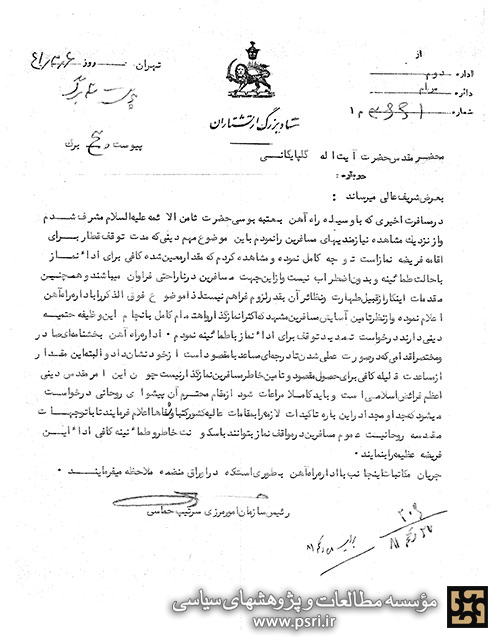 از
اداره دوم
دائره
شماره
تهران روز
ستاد بزرگ ارتشتاران
پیوست پنج برگ
محضر مقدس حضرت آیت اله گلپایگانی
بعرض شریف عالی میرساند :
در مسافرت اخیری که با وسیله راه آهن بعتبه بوسی حضرت ثامن الائمه علیه السلام مشرف شدم
و از نزدیک مشاهده نیازمندیهای مسافرین را نمودم باین موضوع مهم دینی که مدت توقف قطار برای
اقامه فریضه نماز است توجه کامل نموده و مشاهده کردم که مقدار معین شده کافی برای اداء نماز
با حالت طمانینه و بدون اضطراب نیست و از این جهت مسافرین در ناراحتی فراوان میباشند و همچنین
مقدمات اینکار از قبیل طهارت و نظائر آن بقدر لزوم فراهم نیست لذا موضوع فوق الذکر را باداره راه آهن
اعلام نموده و از نظر تامین آسایش مسافرین مشهد که اکثرا نماز گذار و اهتمام کامل بانجام این وظیفه حتمیه
دینی دارند درخواست تمدید توقف برای اداء نماز با طمانینه نمودم . اداره راه آهن بخشنامه ای صادر
و مختصر اقدامی که در صورت عملی شدن تا درجه ای مساعد با مقصود است از خود نشان داد و البته این مقدار
از مساعدت قلیله کافی برای حصول مقصود و تامین خاطر مسافرین نماز گذار نیست چون این امر مقدس دینی
اعظم فرائض اسلامی است و باید کاملا مراعات شود از مقام محترم آن پیشوای روحانی درخواست
میشود که جدا و مجددا در این باره تاکیدات لازمه را بمقامات عالیه کشور کتبا و شفاها اعلام فرمایند تا با توجهات
مقدسه روحانیت عموم مسافرین در مواقف نماز بتوانند با سکونت خاطر و طمانینه کافی اداء این
فریضه عظیمه را بنمایند .
جریان مکاتبات اینجانب با اداره راه آهن بطوری است که در اوراق منضمه ملاحظه میفرمایند .
رئیس سازمان امور مرزی سرتیپ حماسی
مؤسسه مطالعات و پژوهشهای سیاسی
www.psri.ir